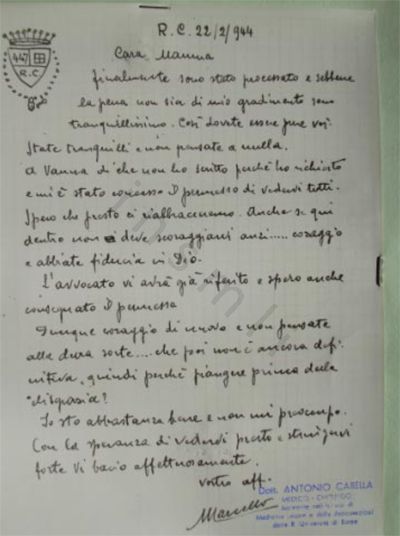 R.C. 22/2/944
447
R.C.
Cara Mamma
finalmente sono stato processato e sebbene
la pena non sia di mio gradimento sono
tranquillissimo. Così dovete essere pure voi.
State tranquilli e non pensate a nulla.
A Vanna di che non ho scritto perché ho richiesto
e mi è stato concesso il permesso di vedervi tutti.
Spero che presto ci riabbracceremo. Anche se qui
dentro non si deve scoraggiarsi anzi..... coraggio
e abbiate fiducia in Dio.
L'avvocato vi avrà già riferito e spero anche
consegnato il permesso
Dunque coraggio di nuovo e non pensate
alla dura sorte.... che poi non è ancora defi
nitiva, quindi perché piangere prima della
"disgrazia?
Io sto abbastanza bene e non mi preoccupo.
Con la speranza di vedervi presto e stringervi
forte vi bacio affettuosamente.
vostro aff.
Marcello
Dott. ANTONIO CABELLA
MEDICO - CHIRURGO